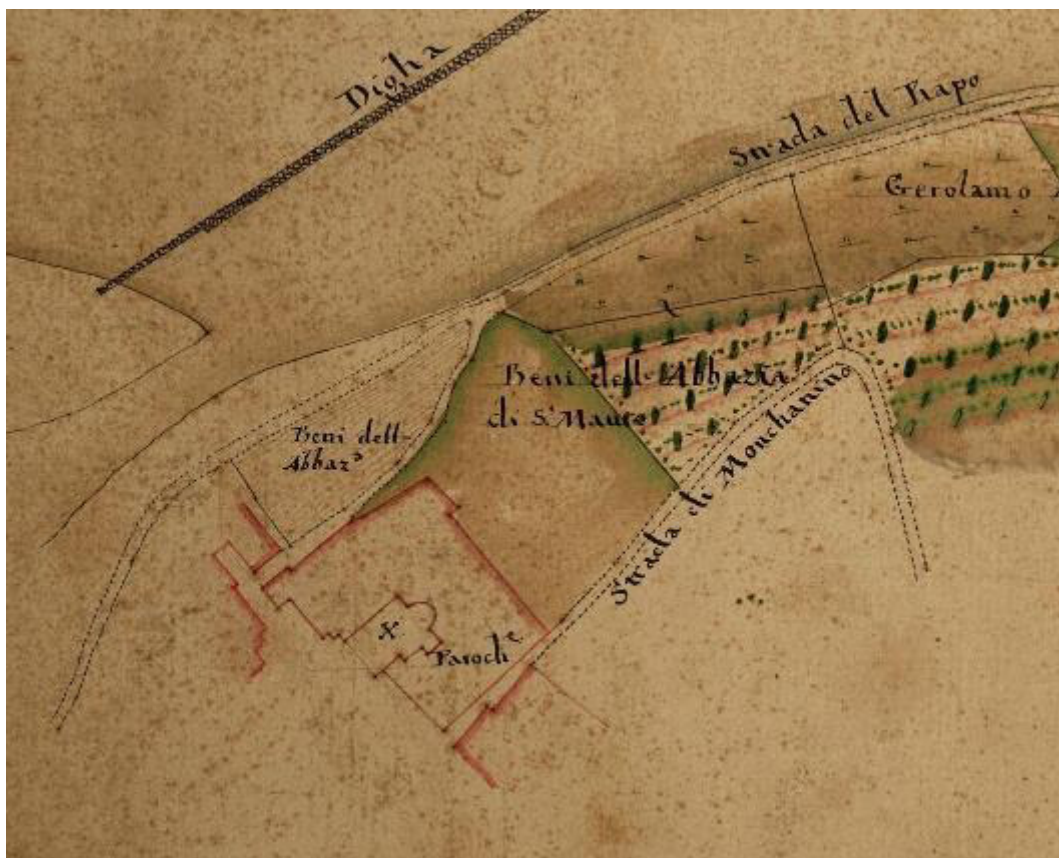 Digha
Strada del
Gerolamo
Beni dell'Abbazia
di S. Mauro
Beni dell'
Abbaz.a
Strada di Monchanino
X
Paroch.e